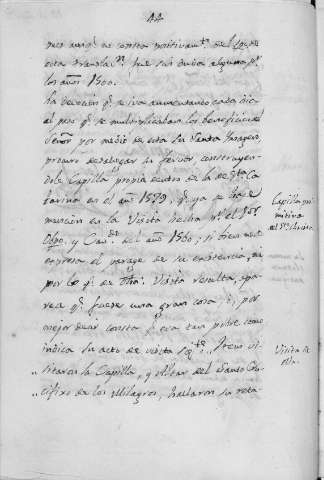 44
pues aunq.e no consta positivam.te del Cop.or
esta translac.n fue sin duda alguna p.r
los años 1500.
La devoción q.e se iva aumentando cada dia,
al paso q.e se multiplicaban los beneficios del
Señor por medio de esta su Santa Imagen,
procuró desahogar su fervor, construyen-
dole Capilla propia dentro de la de S.ta Ca-
tarina en el año 1579, q.e ya se hace
mencion en la Visita hecha p.r el S.or
Obpo, y Cav.do del año 1580; si bien no se
expresa el parage de su existencia, ni
por lo q.e de otra Visita resulta, apa-
rece q.e fuese una gran cosa, ó, por
mejor decir consta q.e era tan pobre como
indica su acto de visita sig.te: Item vi-
" sitaron la Capilla, y Altar del Santo Cru-
" cifixo de los Milagros, hallaron su reta-
Capilla pri-
mitiva
del S.to Christo
Visita de
ella.